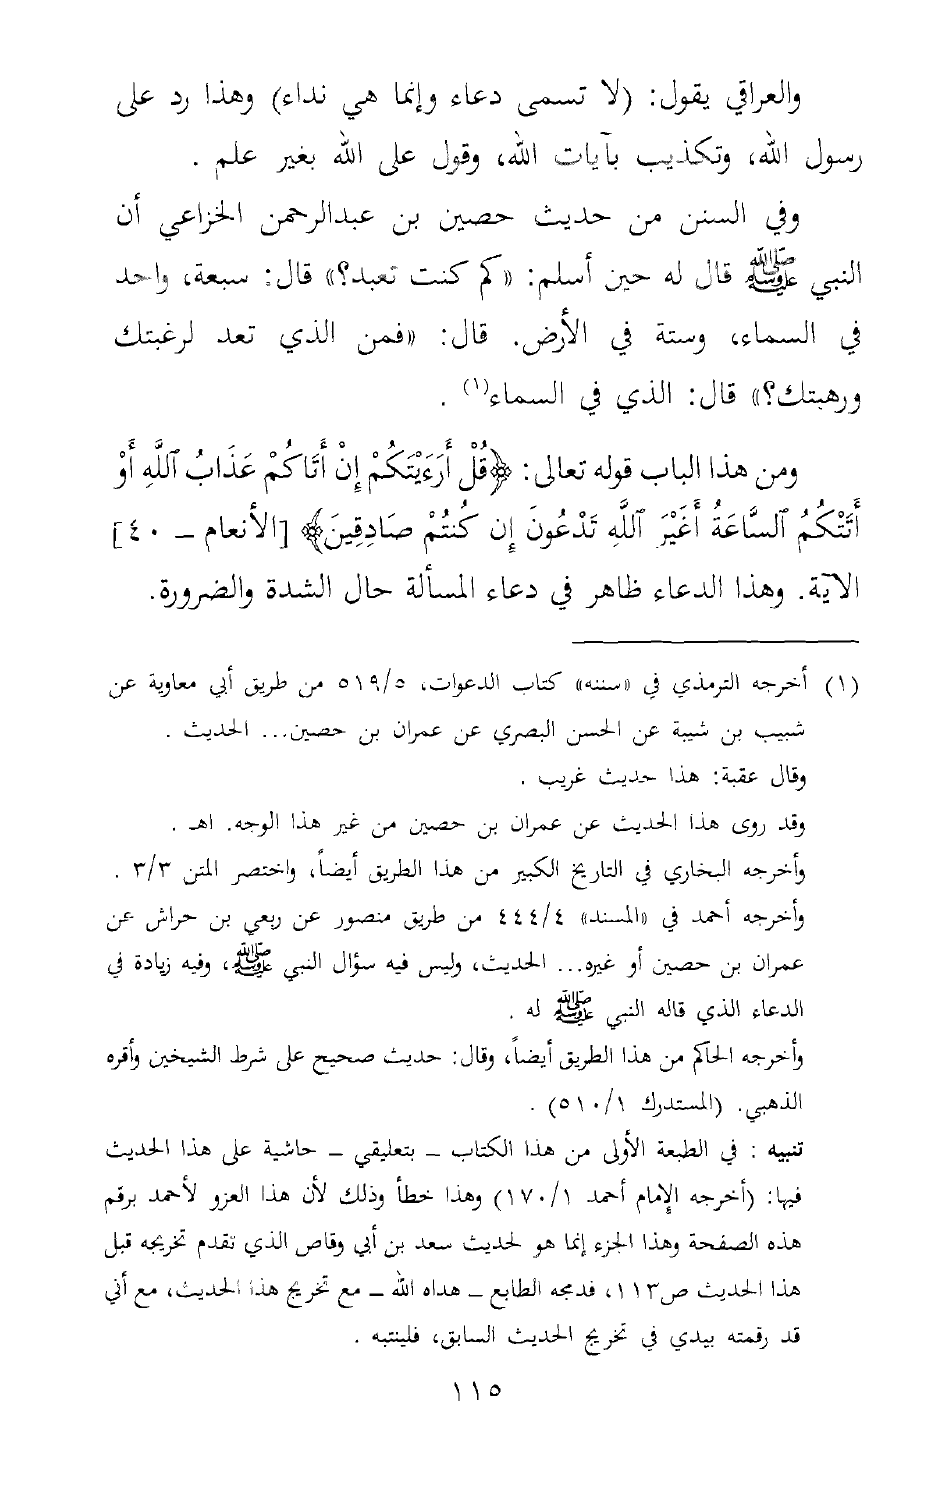 والعراقي يقول: (لا تسمى دعاء وإنما هي نداء) وهذا رد على
رسول الله، وتكذيب بآيات الله، وقول على الله بغير علم .
وفي السنن من حديث حصين بن عبدالرحمن الخزاعي أن
النبي ﷺ قال له حين أسلم: «كم كنت تعبد؟» قال: سبعة، واحد
في السماء، وستة في الأرض. قال: «فمن الذي تعد لرغبتك
ورهبتك؟» قال: الذي في السماء(١) .
ومن هذا الباب قوله تعالى: ﴿قُلْ أَرَءَيْتَكُمْ إِنْ أَتَاكُمْ عَذَابُ ٱللَّهِ أَوْ
أَتَتْكُمُ ٱلسَّاعَةُ أَغَيْرَ ٱللَّهِ تَدْعُونَ إِن كُنتُمْ صَادِقِينَ﴾ [الأنعام ــ ٤٠]
الآية. وهذا الدعاء ظاهر في دعاء المسألة حال الشدة والضرورة.
(١) أخرجه الترمذي في «سننه» كتاب الدعوات، ٥١٩/٥ من طريق أبي معاوية عن
شبيب بن شيبة عن الحسن البصري عن عمران بن حصين... الحديث .
وقال عقبة: هذا حديث غريب .
وقد روى هذا الحديث عن عمران بن حصين من غير هذا الوجه. اهـ .
وأخرجه البخاري في التاريخ الكبير من هذا الطريق أيضاً، واختصر المتن ٣/٣ .
وأخرجه أحمد في «المسند» ٤٤٤/٤ من طريق منصور عن ربعي بن حراش عن
عمران بن حصين أو غيره... الحديث، وليس فيه سؤال النبي ﷺ، وفيه زيادة في
الدعاء الذي قاله النبي ﷺ له .
وأخرجه الحاكم من هذا الطريق أيضاً، وقال: حديث صحيح على شرط الشيخين وأقره
الذهبي. (المستدرك ٥١٠/١) .
تنبيه : في الطبعة الأولى من هذا الكتاب ــ بتعليقي ــ حاشية على هذا الحديث
فيها: (أخرجه الإمام أحمد ١٧٠/١) وهذا خطأ وذلك لأن هذا العزو لأحمد برقم
هذه الصفحة وهذا الجزء إنما هو لحديث سعد بن أبي وقاص الذي تقدم تخريجه قبل
هذا الحديث ص١١٣، فدمجه الطابع ــ هداه الله ــ مع تخريج هذا الحديث، مع أني
قد رقمته بيدي في تخريج الحديث السابق، فلينتبه .
١١٥